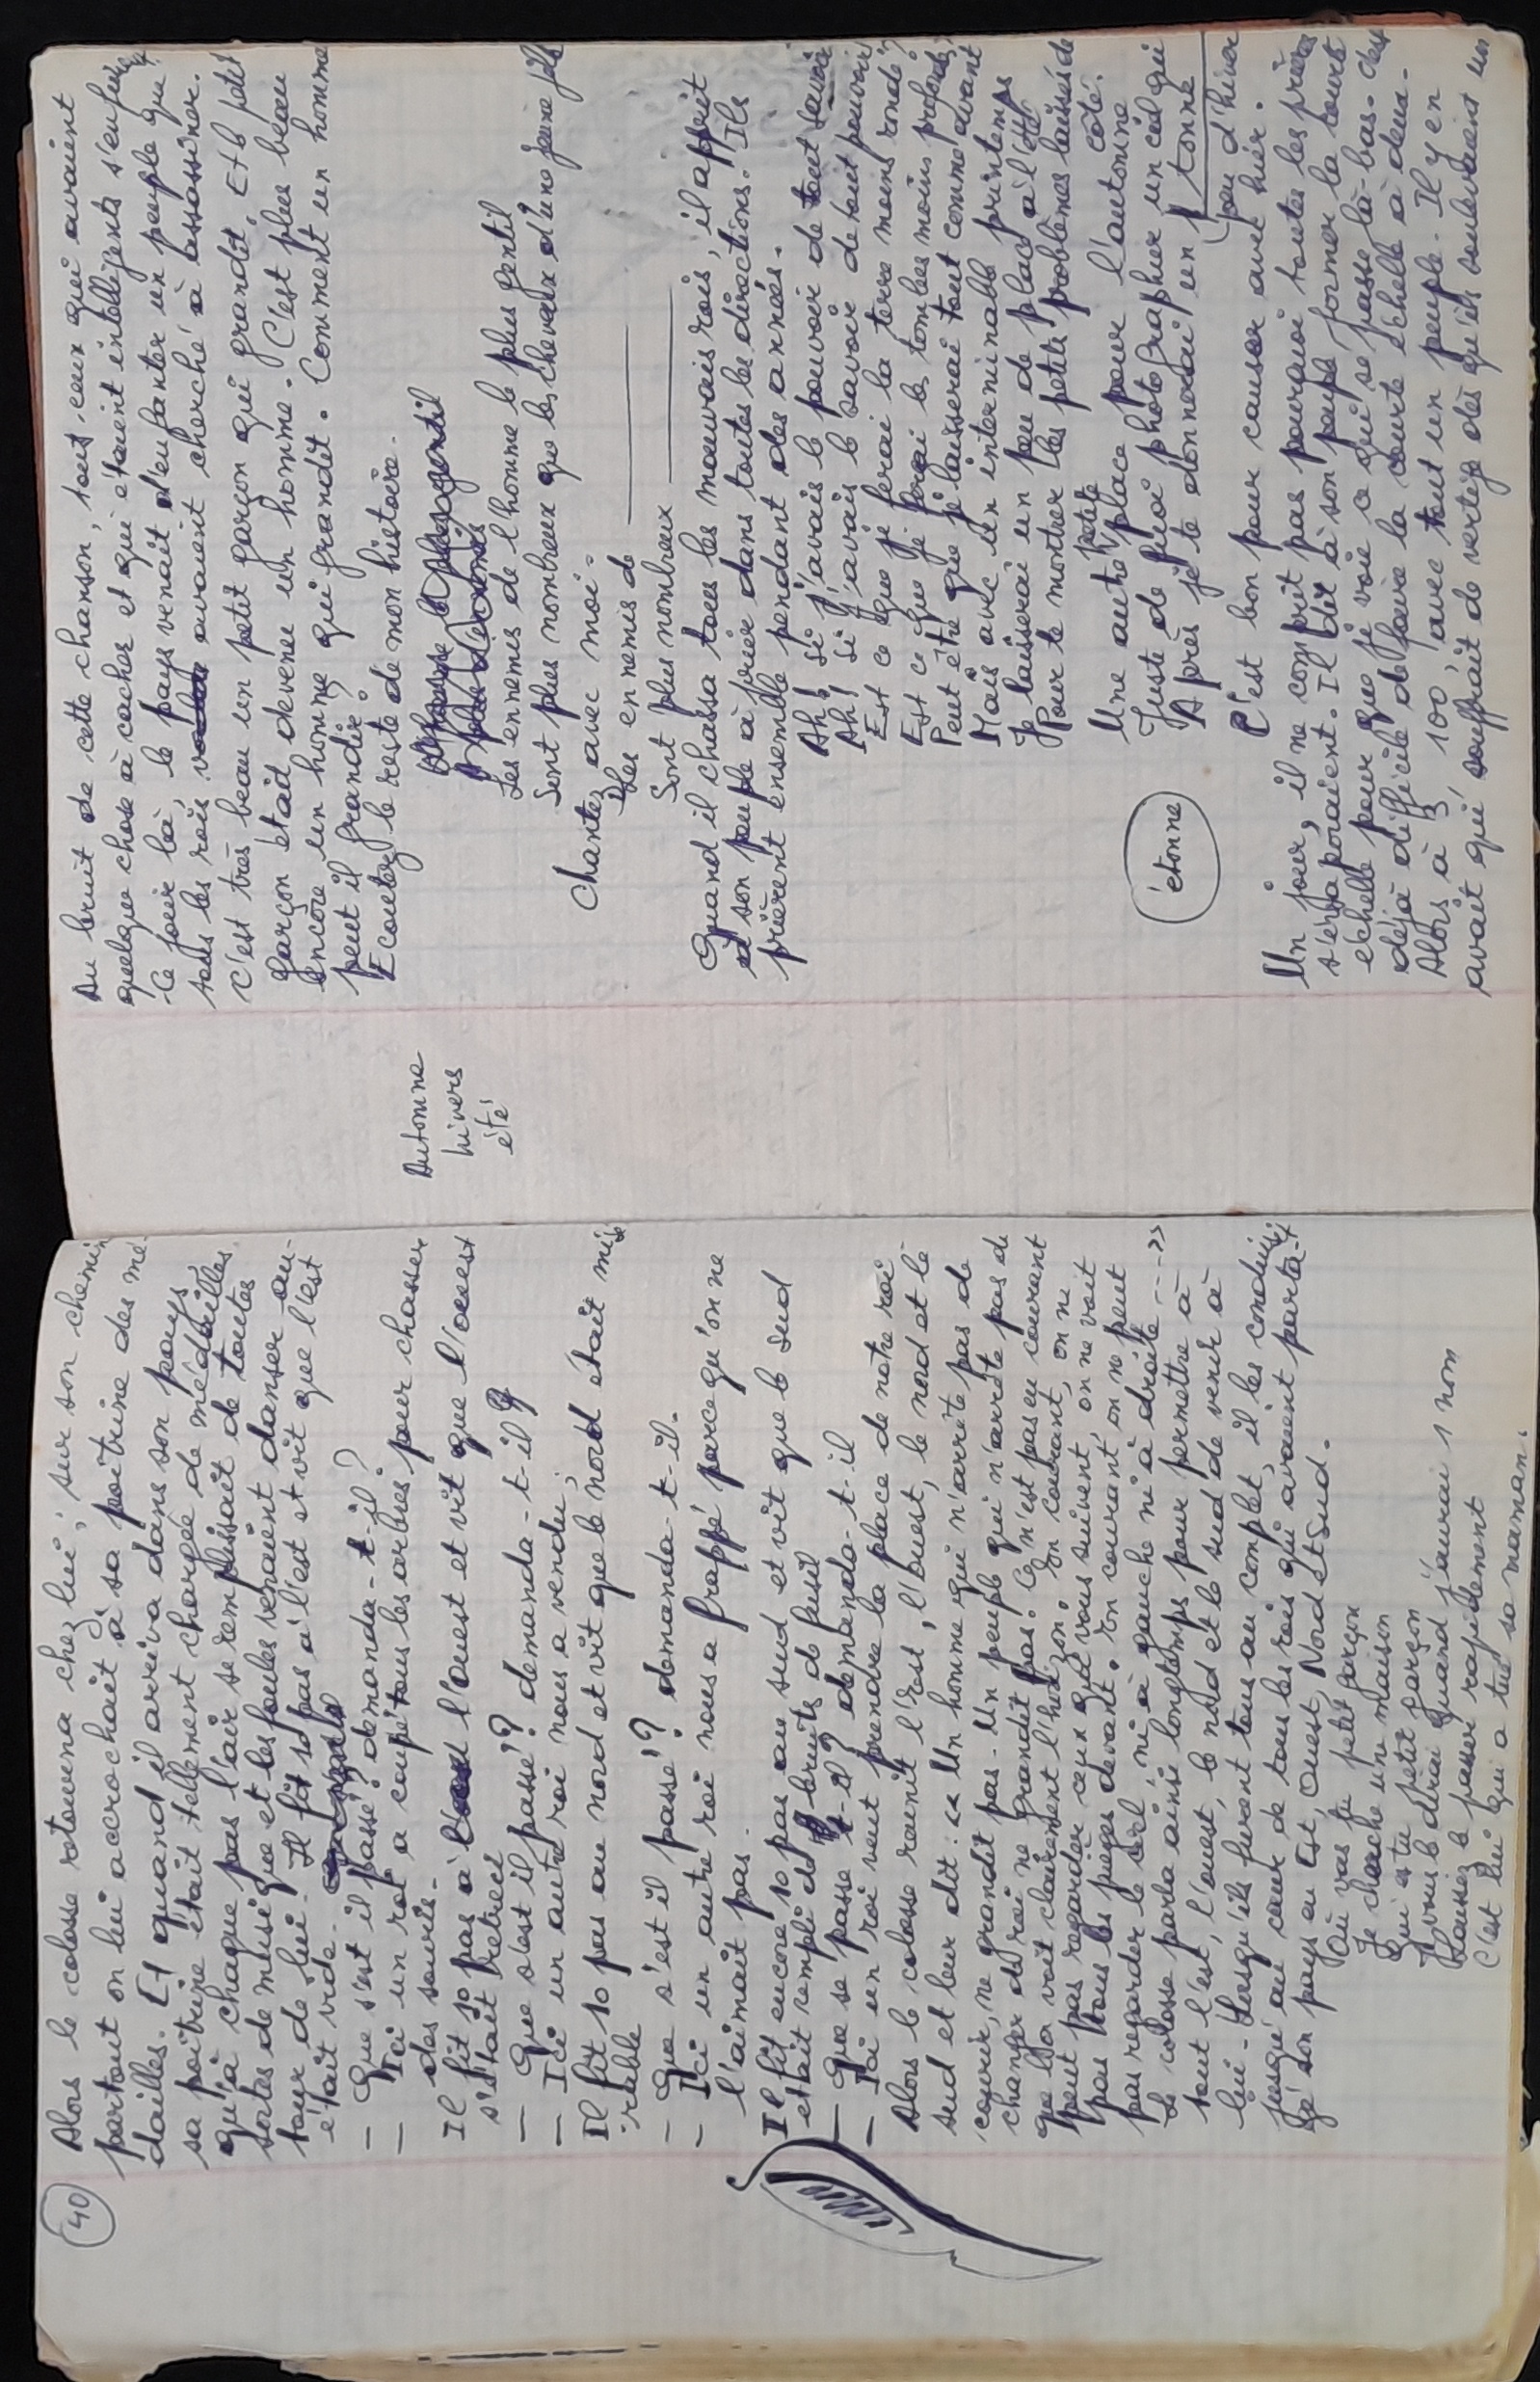 40
Alors le colosse retourna chez lui ; sur son chemin
partout on lui accrochait à sa poitrine des mé-
dailles. Et quand il arriva dans son pays,
sa poitrine était tellement chargée de médailles
qu'à chaque pas l'air se remplissait de toutes
sortes de musique et les foules venaient danser au-
tour de lui. Il fit 10 pas à l'est et vit que l'est
était vide.
— Que s'est il passé ? demanda-t-il ?
— Ici un roi a coupé tous les arbres pour chasser
des souris.
Il fit 10 pas à l'ouest et vit que l'ouest
s'était retreci
— Que s'est il passé ? demanda-t-il
— Ici un autre roi nous a vendu ;
Il fit 10 pas au nord et vit que le nord était misé
rable
— Que s'est il passé ? demanda-t-il.
— Ici un autre roi nous a frappé parce qu'on ne
l'aimait pas.
Il fit encore 10 pas au sud et vit que le sud
etait rempli de bruits de fusil
— Que se passe t-il ? demanda-t-il
— Ici un roi veut prendre la place de notre roi
Alors le colosse reunit l'Est, l'ouest, le nord et le
sud et leur dit : « Un homme qui n'arrête pas de
courir, ne grandit pas. Un peuple qui n'arrête pas de
changer de roi ne grandit pas. Ce n'est pas en courant
que l'on voit clairement l'horizon. En courant, on ne
peut pas regarder ceux qui vous suivent, on ne voit
pas tous les pièges devant. En courant, on ne peut
pas regarder le ciel, ni à gauche ni à droite ---- »
Le colosse parla ainsi longtemps pour permettre à
tout l'est, l'ouest, le nord et le sud de venir à
lui - Lorsqu'ils furent tous au complet, il les conduisit
jusqu'au cœur de tous les rois qui avaient parta-
gé son pays en Est, Ouest, Nord et Sud.
Où vas tu petit garçon
Je cherche une maison
Qui es tu petit garçon
Je vous le dirai quand j'aurai 1 nom
Laissez le passer rapidement
C'est lui qui a tué sa maman.
Automne
hivers
été
Au bruit de cette chanson, tous ceux qui avaient
quelque chose à cacher et qui étaient intelligents s'enfuirent
Ce jour là, le pays venait d'enfanter un peuple que
tous les rois avaient cherché à assassiner.
C'est très beau un petit garçon qui grandit. Et le petit
garçon était devenu un homme. C'est plus beau
encore un homme qui grandit. Comment un homme
peut il grandir ?
Ecoutez le reste de mon histoire.
Les ennemis de l'homme le plus gentil
Sont plus nombreux que les cheveux d'une jeune fille
Chantez avec moi.
Les ennemis de
Sont plus nombreux
Quand il chassa tous les mauvais rois, il apprit
à son peuple à prier dans toutes les directions. Ils
prièrent ensemble pendant des années.
Ah ! si j'avais le pouvoir de tout savoir
Ah ! si j'avais le savoir de tout pouvoir
Est ce que je ferai la terre moins ronde ?
Est ce que je ferai les tombes moins profondes ?
Peut être que je laisserai tout comme avant
Mais avec un interminable printemps
Je laisserai un peu de place à l'été
Pour te montrer les petits problèmes laissés de
côté.
Une autre petite place pour l'automne
Juste de quoi photographier un ciel qui
tonne
Après je te donnerai un
peu d'hiver
C'est bon pour causer avec hier.
étonne
Un jour, il ne comprit pas pourquoi toutes les prières
s'évaporaient. Il dit à son peuple former la courte
échelle pour que je voie ce qui se passe là-bas. C'est
déjà difficile de faire la courte échelle à deux.
Alors à 3 100, avec tout un peuple. Il y en
avait qui souffrait de vertige dès qu'ils soulevaient un